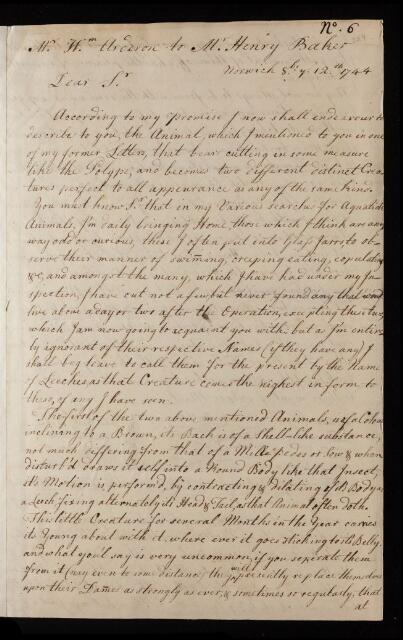 No. 6
Mr. Wm. Arderon to Mr. Henry Baker
Norwich 8br. ye. 12th 1744
Dear Sr.
According to my Promise I now shall endeavour to
describe to you, the Animal, which I mentioned to you in one
of my former Letters, that bear cutting in some measure
like the Polype, and becomes two different distinct Crea-
tures perfect to all appearance as any of the same kind.
You must know Sr. that in my Various searches for Aquatick
Animals, I'm daily bringing Home, those which I think are any
way odd or curious, these I often put into Glass Jarrs to ob-
serve their manner of swiming, creeping eating, copulation
&c, and amongst the many, which I have had under my In-
spection, I have cut not a few, but never found any that woud
live above a day or two after the Operation, excepting these two,
which I am now going to acquaint you with: but as I'm entire-
ly ignorant of their respective Names (if they have any) I
shall beg leave to call them for the present by the Name
of Leeches, as that Creature comes the nighest in form to
these, of any I have seen.
The first of the two above mentioned Animals, is of a Colour
inclining to a Brown, its Back is of a Shell-like substance,
not much differing from that of a Millepedes or Sow & when
disturb'd draws it self into a Round Body like that Insect,
its Motion is preform'd, by contracting & dilating of its Body as
a Leech, fixing alternately its Head & Tail, as that Animal often doth.
This little Creature for several Months in the Year carries
its Young about with it, where ever it goes sticking to its Belly,
and what you'l say is very uncommon, if you seperate them
from it (nay even to some distance) they will presently replace themselves
upon their Dames as strongly as ever, & sometimes so regularly, that
at